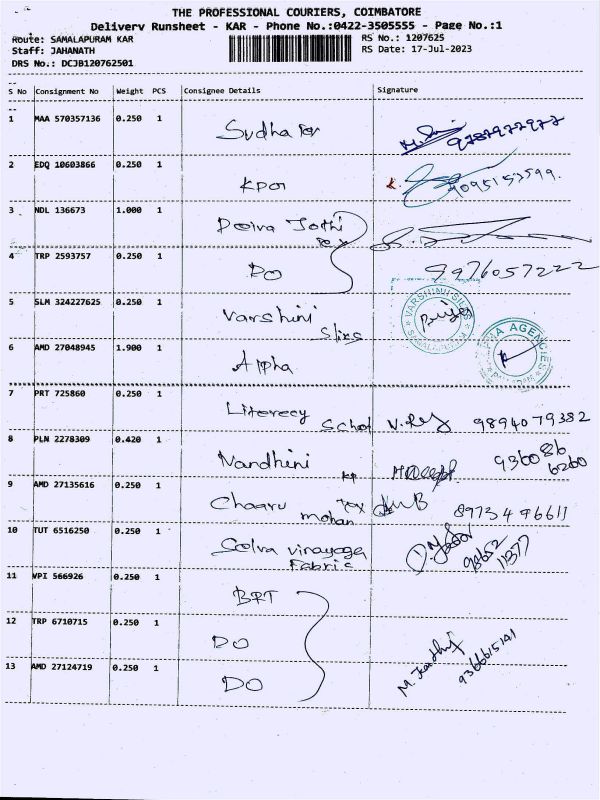 THE PROFESSIONAL COURIERS, COIMBATORE
Delivery Runsheet - KAR - Phone No.:0422-3505555 - Page No.:1
Route: SAMALAPURAM KAR RS No.: 1207625
Staff: JAHANATH RS Date: 17-Jul-2023
DRS No.: DCJB120762501
S No Consignment No Weight PCS Consignee Details Signature
1 MAA 570357136 0.250 1
Sudha Tex 9787977977
2 EDQ 10603866 0.250 1
KPR 9095153599.
3 NDL 136673 1.000 1
Deiva Jothi
Tex
4 TRP 2593757 0.250 1
DO 9976057222
5 SLM 324227625 0.250 1
Varshini VARSHINI SILKS
Slks SAMALAPURAM
6 AMD 27048945 1.900 1
Alpha AGENCIES
7 PRT 725860 0.250 1
Literecy
Schol 9894079382
8 PLN 2278309 0.420 1
Nandhini 936086
6260
9 AMD 27135616 0.250 1
Chaaru Tex
mohan 8973496611
10 TUT 6516250 0.250 1
Selva vinayaga 98652
Fabric 11377
11 VPI 566926 0.250 1
BRT
12 TRP 6710715 0.250 1
DO
13 AMD 27124719 0.250 1
DO 9366615141